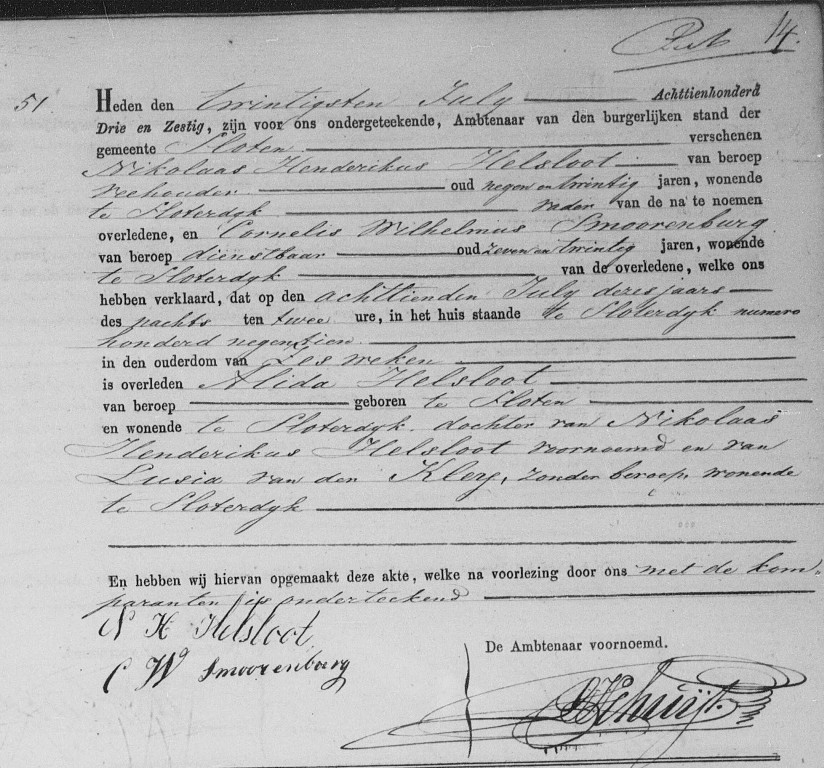 14.
51
Heden den twintigsten July Achttienhonderd
Drie en Zestig, zijn voor ons ondergeteekende, Ambtenaar van den burgerlijken stand der
gemeente Sloten verschenen
Nikolaas Henderikus Helsloot van beroep
veehouder oud negen en twintig jaren, wonende
te Sloterdyk vader van de na te noemen
overledene, en Cornelis Wilhelmus Smoorenburg
van beroep dienstbaar oud zeven en twintig jaren, wonende
te Sloterdyk van de overledene, welke ons
hebben verklaard, dat op den achttienden July dezes jaars
des nachts ten twee ure, in het huis staande te Sloterdyk numero
honderd negentien
in den ouderdom van Zes weken
is overleden Alida Helsloot
van beroep geboren te Sloten
en wonende te Sloterdyk. dochter van Nikolaas
Henderikus Helsloot voornoemd en van
Lusia van der Kley, zonder beroep, wonende
te Sloterdyk
En hebben wij hiervan opgemaakt deze akte, welke na voorlezing door ons met de kom,
paranten is onderteekend
N H Helsloot
C W Smoorenburg
De Ambtenaar voornoemd.